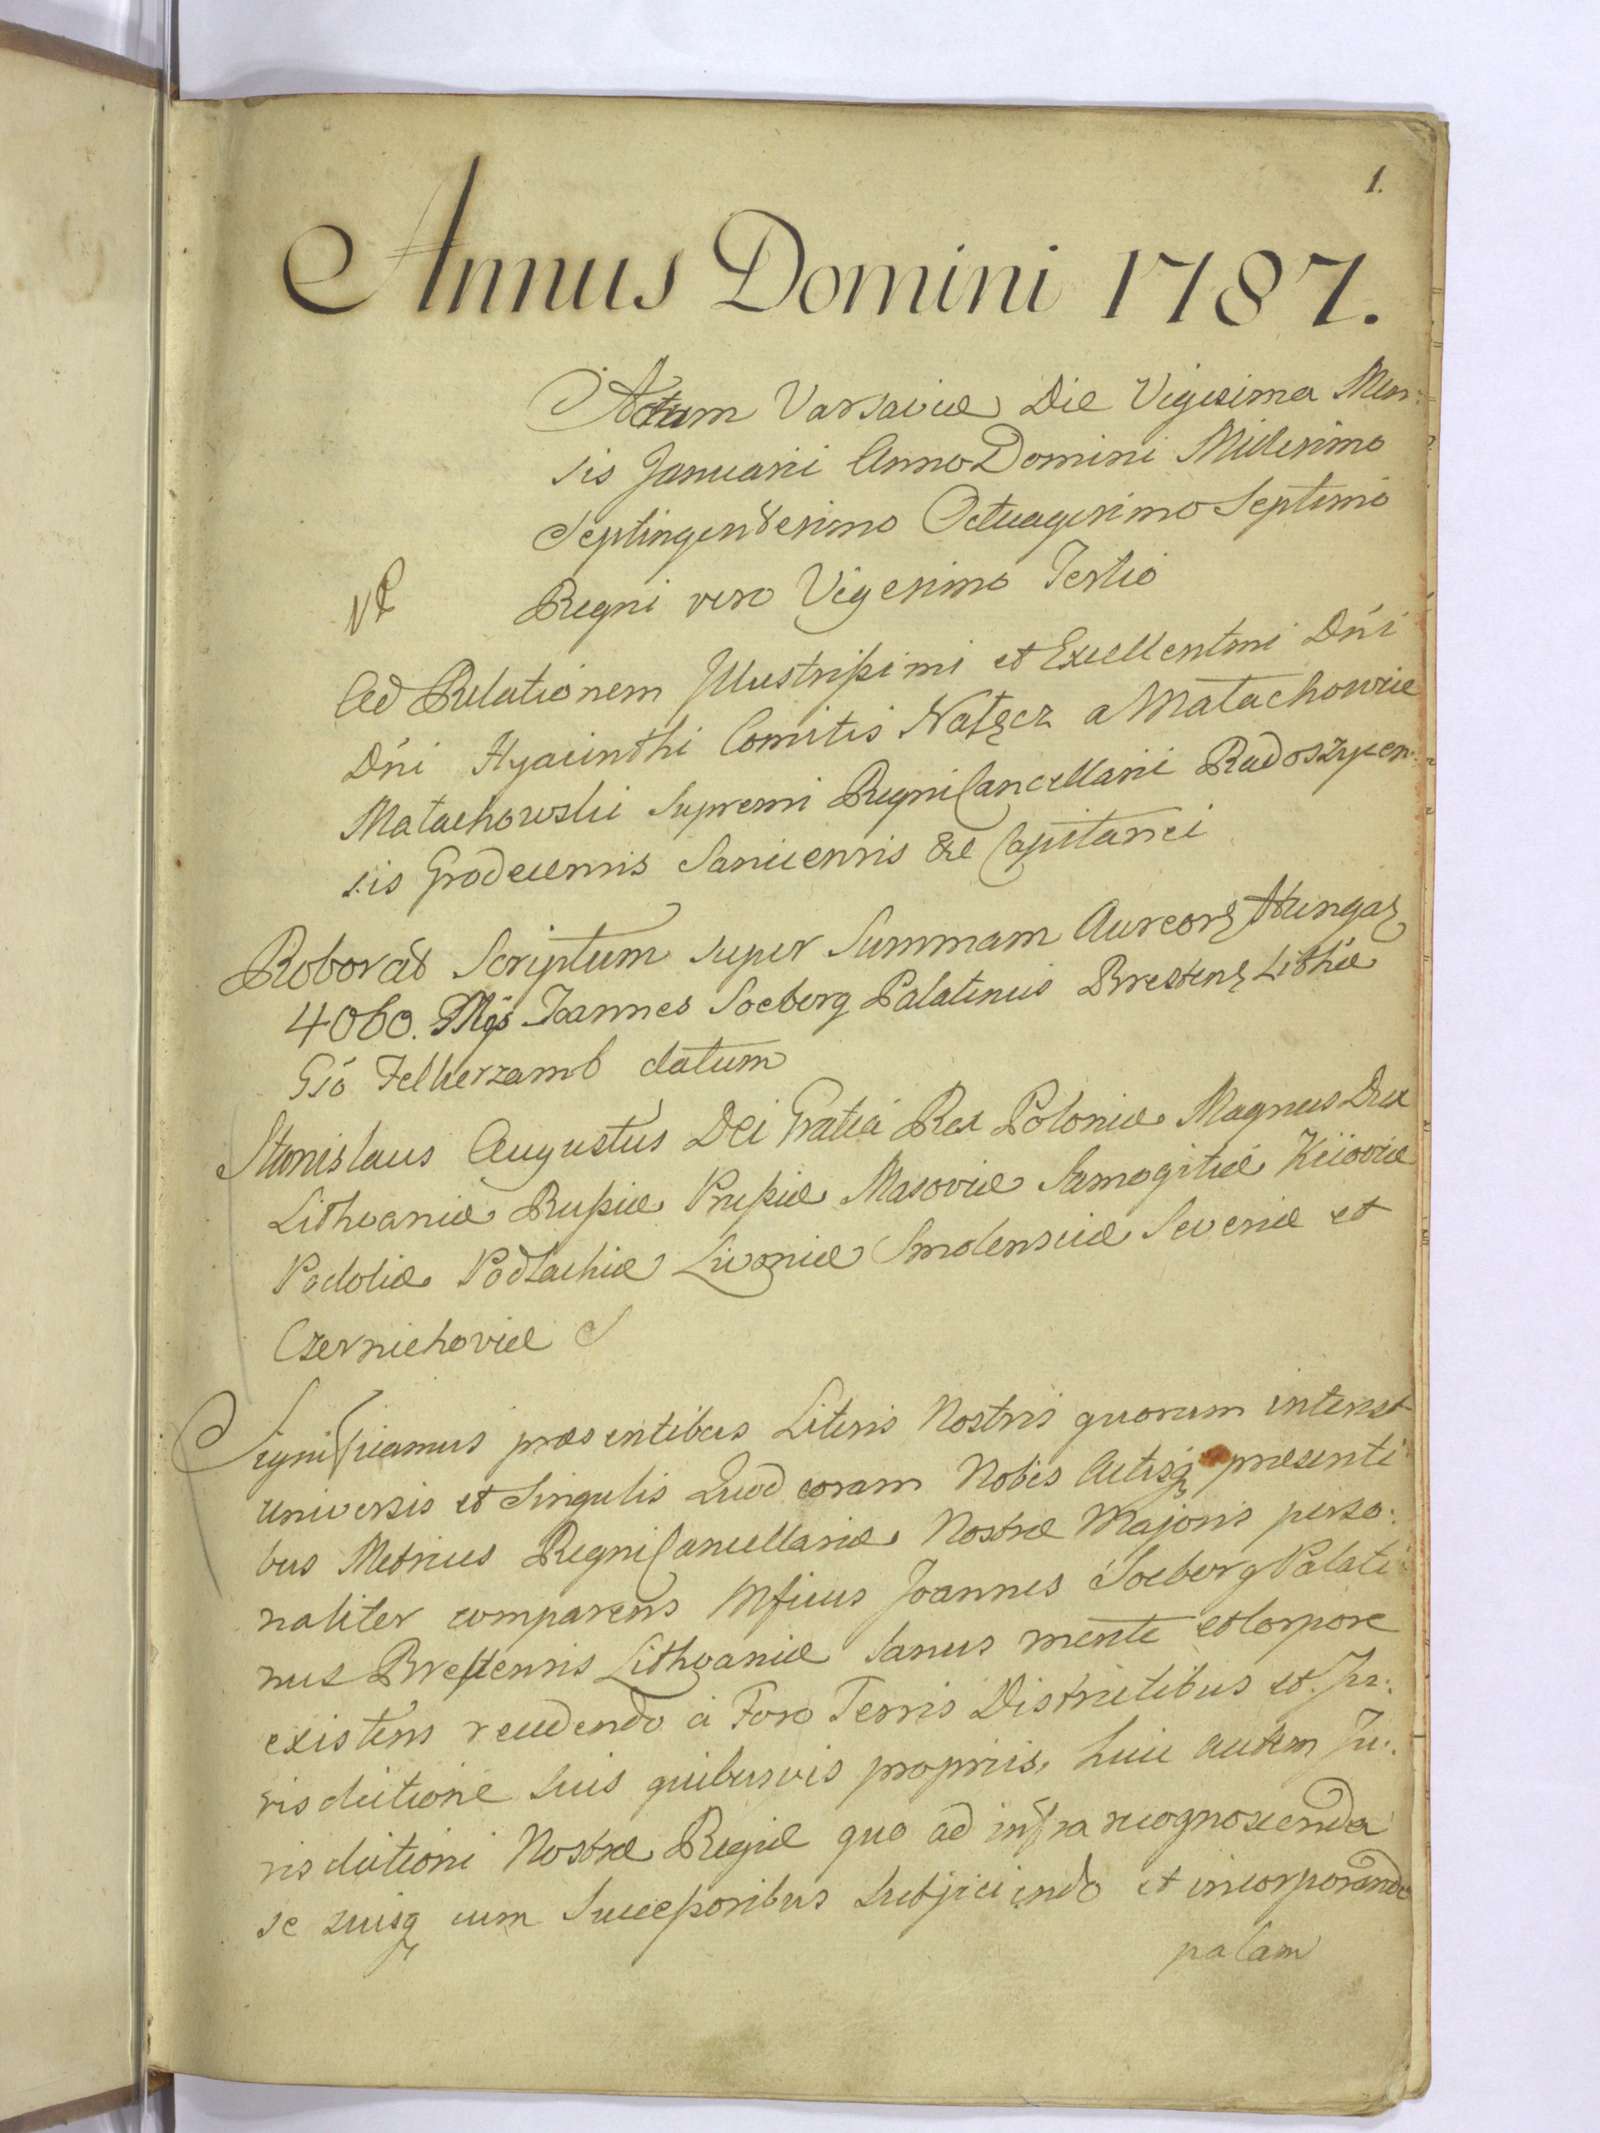 1.
Annus Domini 1787.
Actum Varsaviæ Die Vigesima Men:
sis Januarii Anno Domini Millesimo
Septingentesimo Octuagesimo Septimo
Regni vero Vigesimo Tertio
Ad Relationem Illustrissimi et Excellentmi Dńi
Dńi Hyacinthi Comitis Nałęcz a Małachowice
Małachowski Supremi Regni Cancellarii Radoszycen:
sis Grodecensis Sanicensis &c Capitanei
Roborat Scriptum super Summam Aureorȝ Hungaȝ
4060. Mgs Joannes Soeberg Palatinus Brestensȝ Lithæ
Gśo Felkerzamb datum
Stanislaus Augustus Dei Gratia Rex Poloniæ Magnus Dux
Lithvaniæ Russiæ Prussiæ Masoviæ Samogitiæ Kiioviæ
Podoliæ Podlachiæ Livoniæ Smolensciæ Severiæ et
Czerniehoviæ
Significamus præsentibus Literis Nostris quorum interest
universis et Singulis Quod coram Nobis Actisq præsenti
bus Metrices Regni Cancellariæ Nostræ Majoris perso:
naliter comparens Mficus Joannes Soeberg Palati
nus Brestensis Lithvaniæ Sanus mente et Corpore
existens recedendo à Foro Terris Districtibus et Ju:
risdictione suis quibusvis propriis, huic autem Ju:
risdictioni Nostræ Regiæ quo ad infra recognoscenda
se suisq cum Successoribus Subjiciendo et incorporando
palam